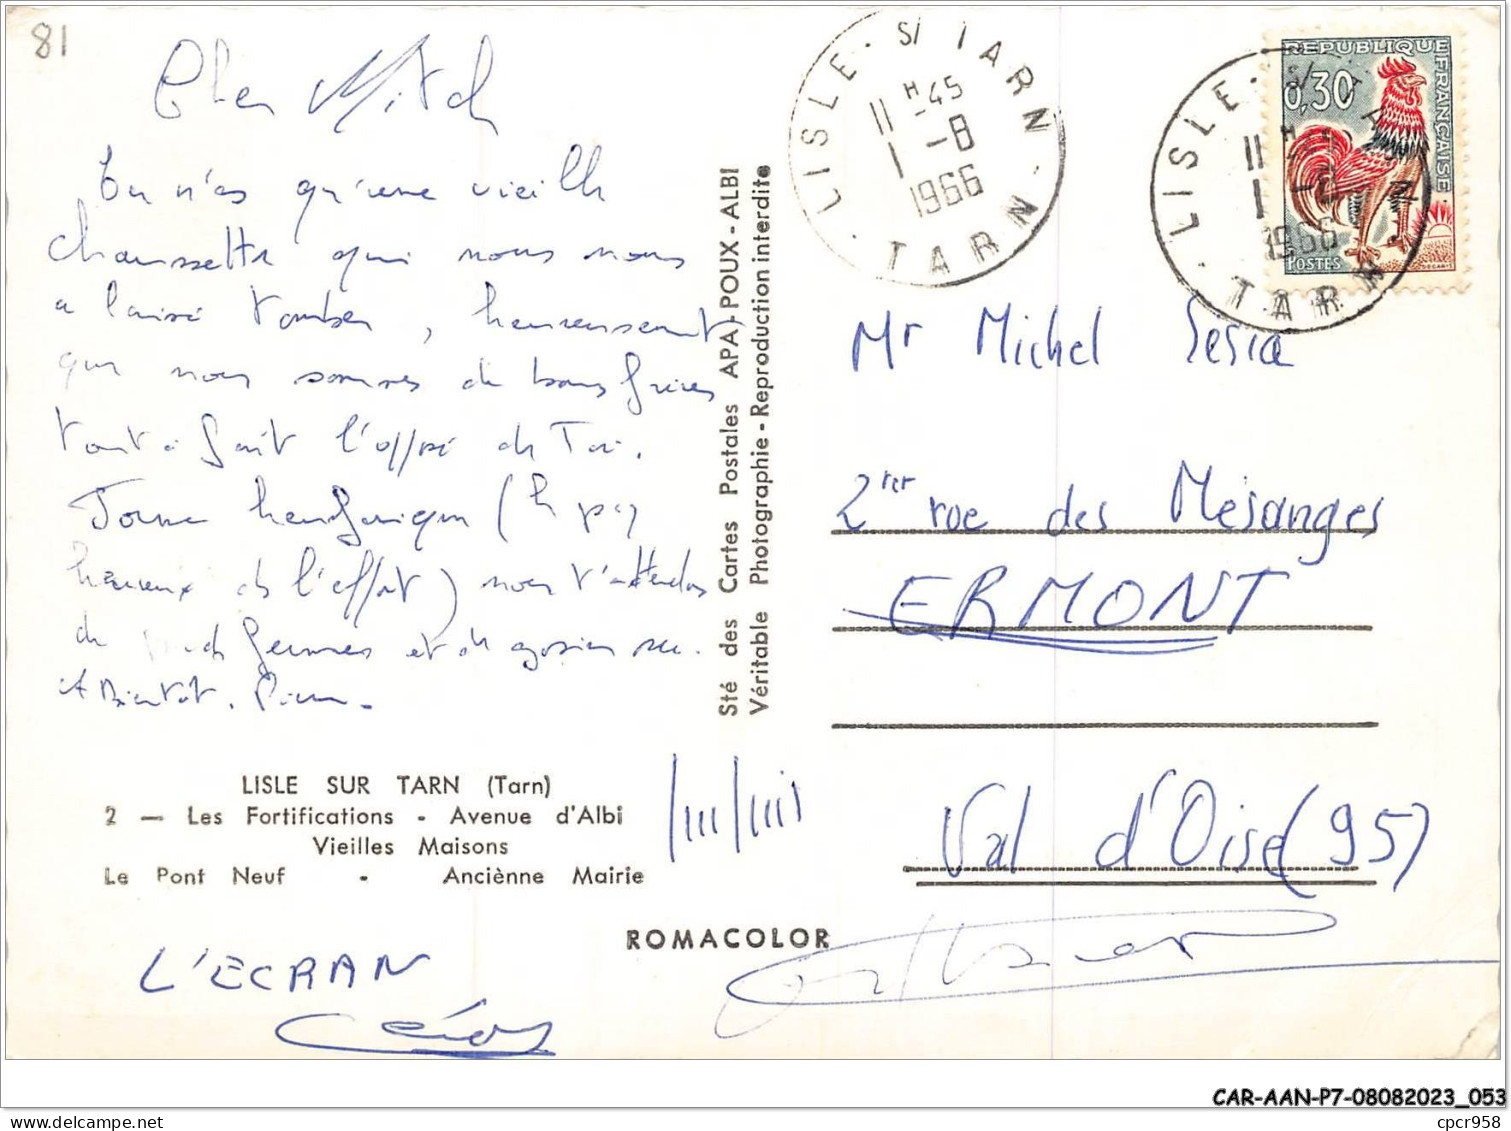 81
Cher Mitch
tu n'es qu'une vieille
chaussette qui nous nous
a laissé tomber, heureusement
que nous sommes de bons frères
tout à fait l'opposé de Toi.
heureux de l'effort) nous t'attendons
de femmes et de
A Bientôt.
LISLE SUR TARN (Tarn)
2 — Les Fortifications - Avenue d'Albi
Vieilles Maisons
Le Pont Neuf - Anciènne Mairie
ROMACOLOR
L'ECRAN
Sté des Cartes Postales APA-POUX - ALBI
Véritable Photographie - Reproduction interdite
LISLE · S/ TARN · TARN ·
11 H -45
1 -8
1966
REPUBLIQUE FRANÇAISE
0,30
POSTES
DECARIS
LISLE · S/ TARN · TARN ·
11 H
1 -8
1966
Mr Michel Sesia
2 rue des Mésanges
ERMONT
Val d'Oise (95)
CAR-AAN-P7-08082023_053
cpcr958